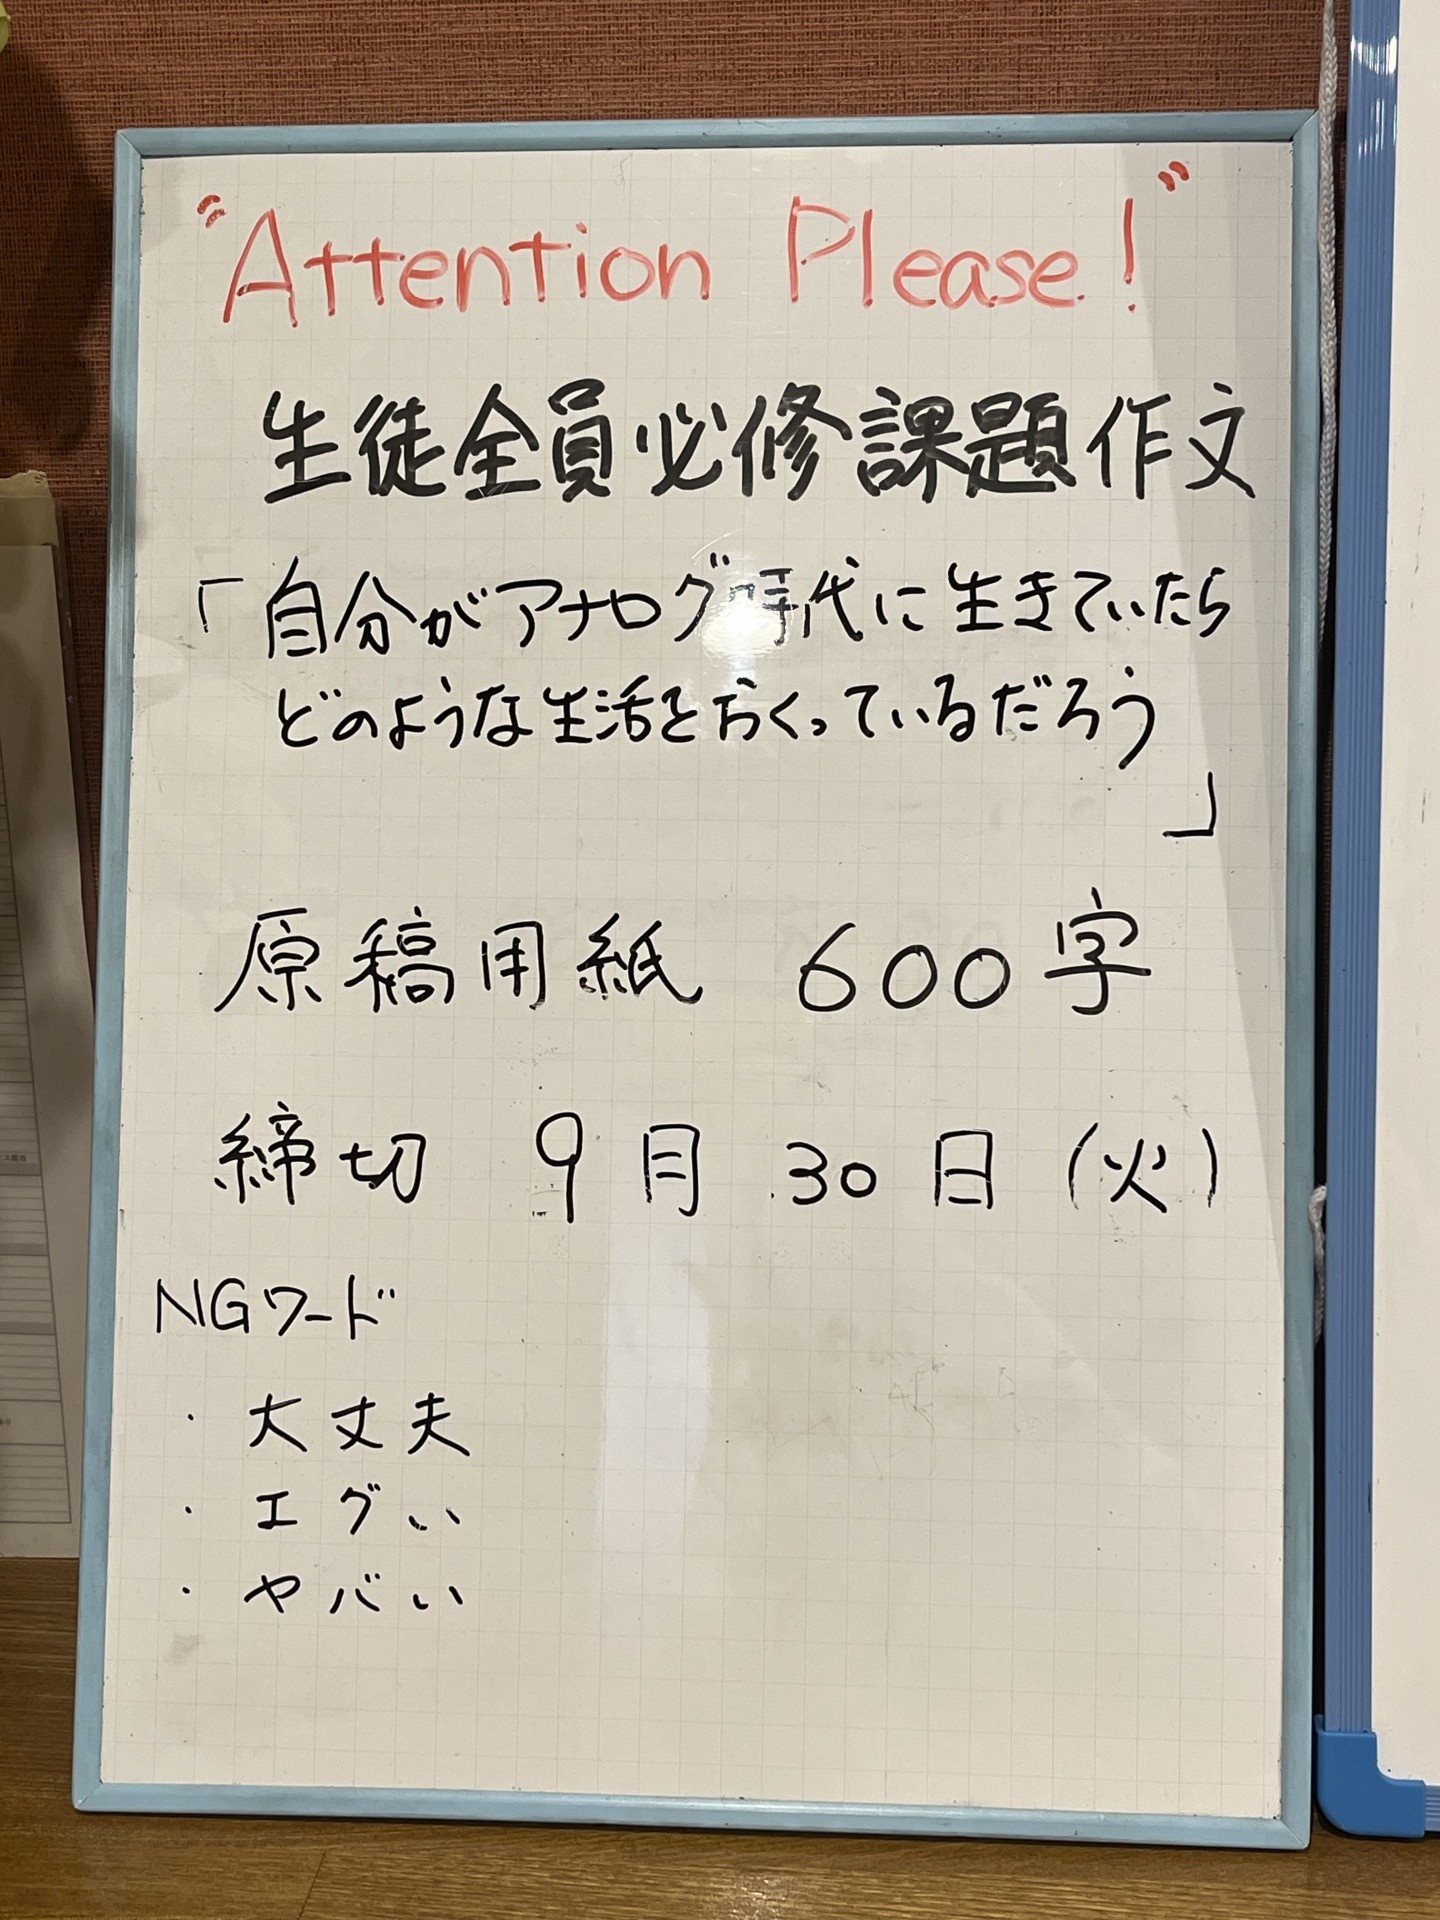 "Attention Please!"
生徒全員必修課題作文
「自分がアナログ時代に生きていたら
どのような生活をおくっているだろう
」
原稿用紙 600字
締切 9月 30日(火)
NGワード
・大丈夫
・エグい
・ヤバい